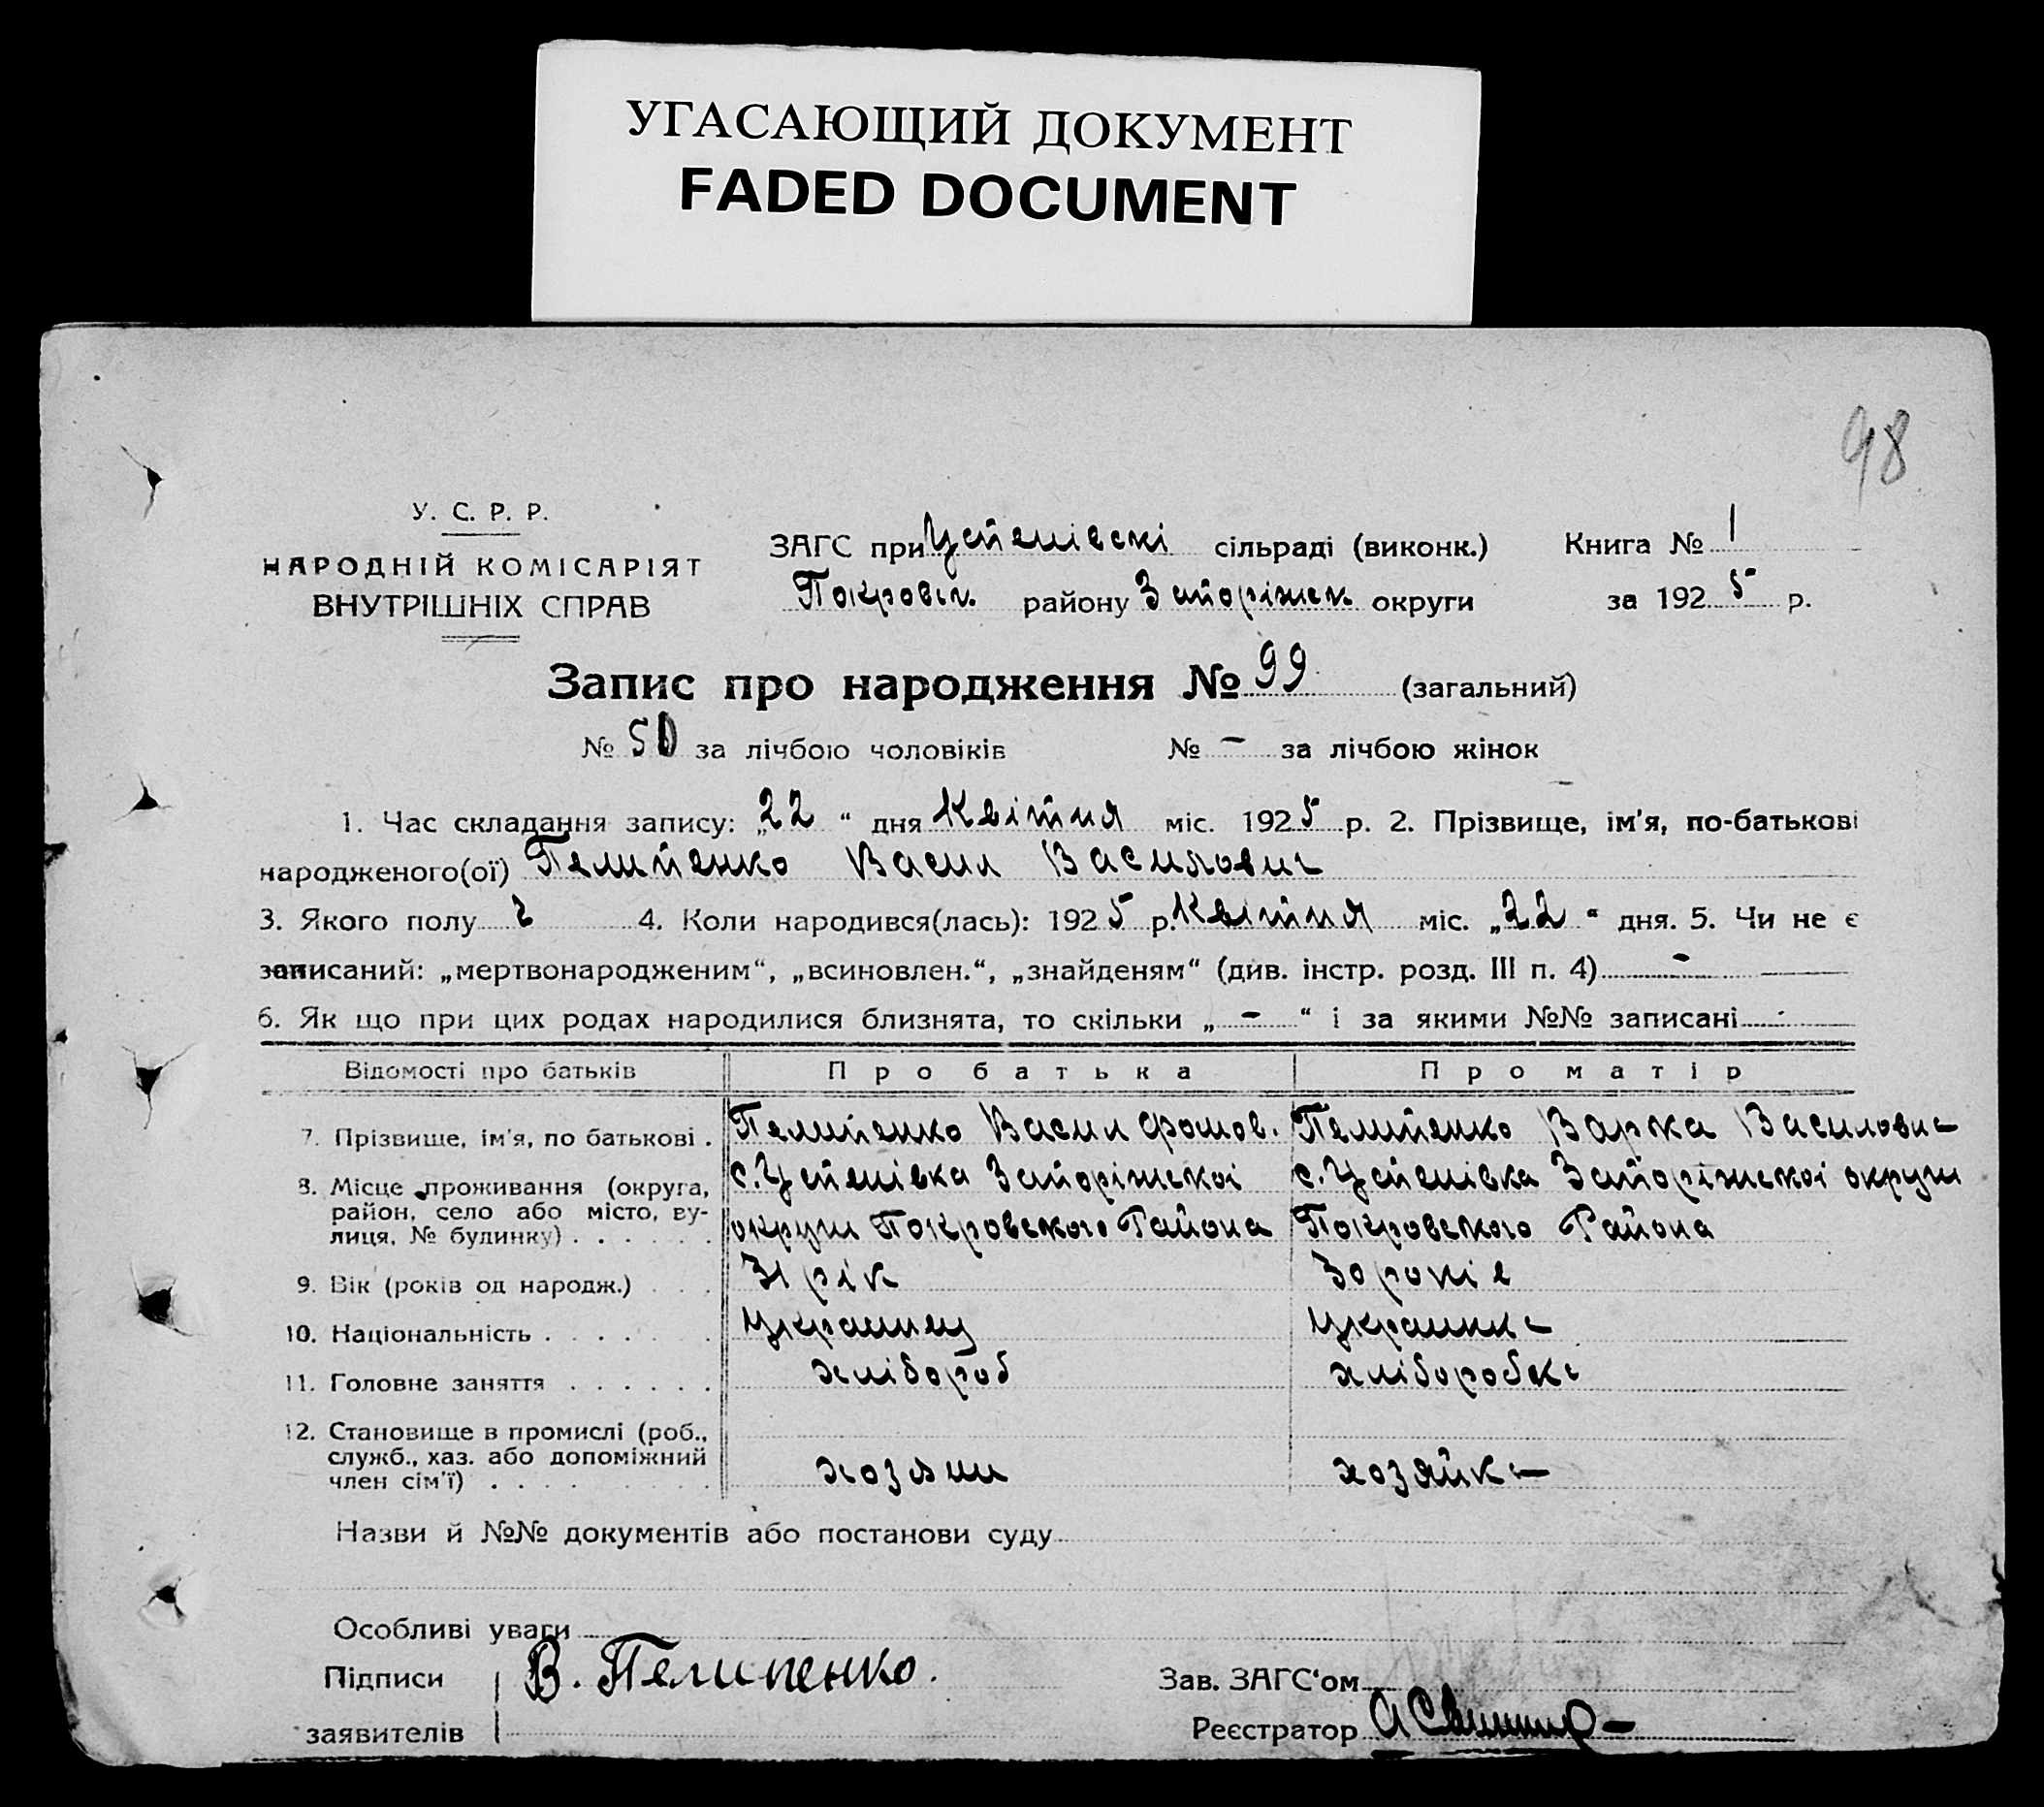 УГАСАЮЩИЙ ДОКУМЕНТ
FADED DOCUMENT
98
У. С. Р. Р.
НАРОДНІЙ КОМІСАРІЯТ
ВНУТРІШНІХ СПРАВ
ЗАГС при Успенівскі сільраді (виконк.)
Покровск. району Запоріжск округи
Книга № 1
за 1925 р.
Запис про народження № 99 (загальний)
№ 50 за лічбою чоловіків № - за лічбою жінок
1. Час складання запису: „22“ дня Квітня міс. 1925 р. 2. Прізвище, ім'я, по-батькові
народженого(ої) Пелипенко Васил Василович
3. Якого полу ч 4. Коли народився(лась): 1925 р. Квітня міс. „22“ дня. 5. Чи не є
записаний: „мертвонародженим“, „всиновлен.“, „знайденям“ (див. інстр. розд. III п. 4) -
6. Як що при цих родах народилися близнята, то скільки „ - “ і за якими №№ записані -
Відомості про батьків Про батька Про матір
7. Прізвище, ім'я, по батькові . Пелипенко Васил Фомов. Пелипенко Варка Василовна
8. Місце проживання (округа, район, село або місто, вулиця, № будинку) . . . . . . с. Успенівка Запоріжскоі округи Покровского Района с. Успенівка Запоріжскоі округи Покровского Района
9. Вік (років од народж.) . . . 31 рік 30 років
10. Національність . . . . . . . Украинец Украинка
11. Головне заняття . . . . . . хлібороб хліборобка
12. Становище в промислі (роб., служб., хаз. або допоміжний член сім'ї) . . . . . . . . . хозяин хозяйка
Назви й №№ документів або постанови суду
Особливі уваги
Підписи В. Пелипенко.
заявителів
Зав. ЗАГС'ом
Реєстратор